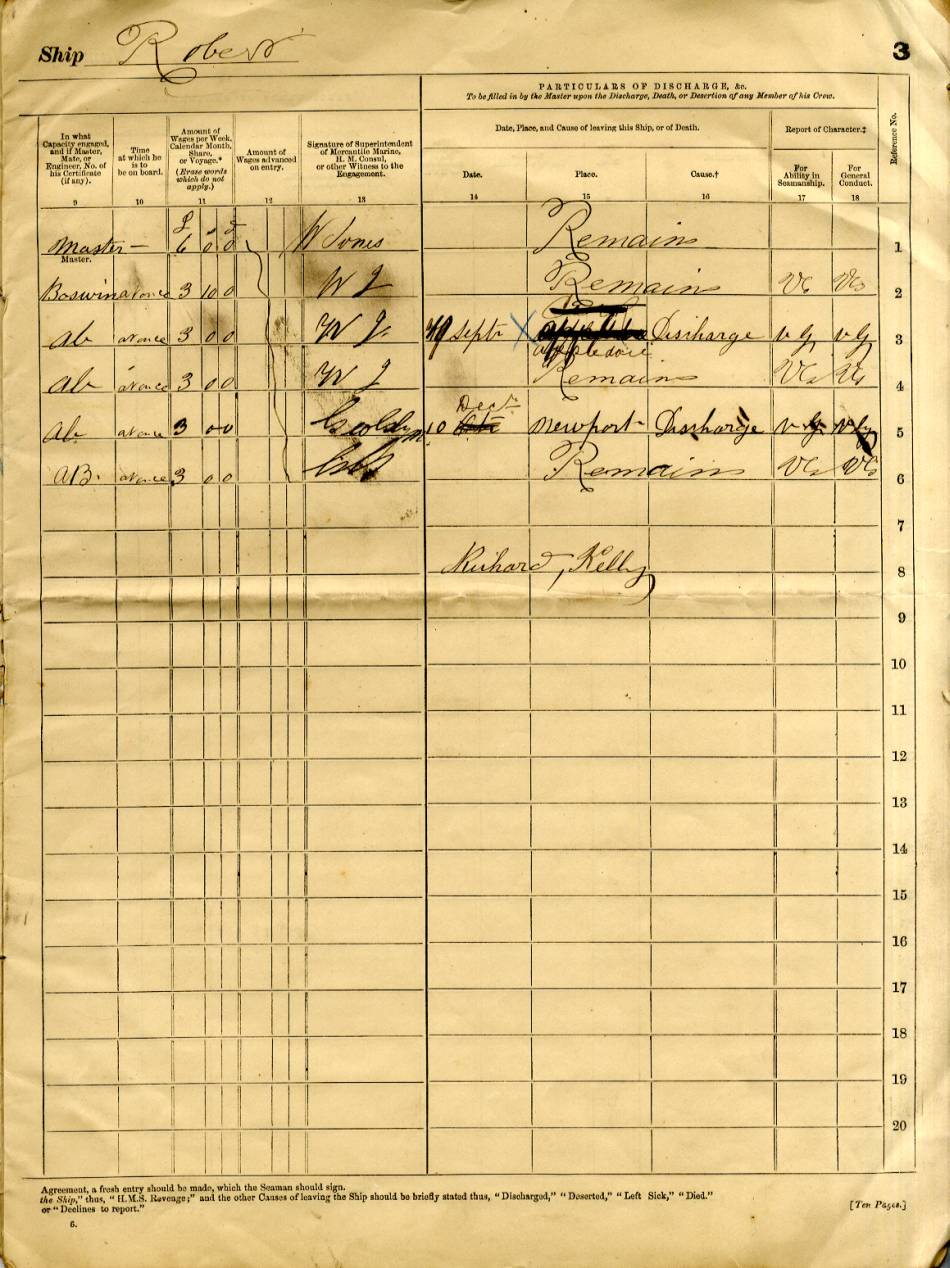 Ship Robert
3
PARTICULARS OF DISCHARGE, &c.
To be filled in by the Master upon the Discharge, Death, or Desertion of any Member of his Crew.
In what Capacity engaged, and if Master, Mate, or Engineer, No. of his Certificate (if any).
Time at which he is to be on board.
Amount of Wages per Week, Calendar Month, Share, or Voyage.* (Erase words which do not apply.)
Amount of Wages advanced on entry.
Signature of Superintendent of Mercantile Marine, H. M. Consul, or other Witness to the Engagement.
Date, Place, and Cause of leaving this Ship, or of Death.
Report of Character.‡
Reference No.
Date. Place. Cause.†
For Ability in Seamanship.
For General Conduct.
9 10 11 12 13 14 15 16 17 18
£ s d
Master — 6 0 0 W Jones Remains 1
Master.
Boswin at once 3 10 0 W J Remains VG VG 2
ab at once 3 0 0 W J. Sept X Discharge v g v g 3
appledore
ab at once 3 0 0 W J Remains VG VG 4
Decr
ab at once 3 0 0 10 Newport Discharge v g v g 5
AB. at once 3 0 0 Remains VG VG 6
7
Richard, Kelly 8
9
10
11
12
13
14
15
16
17
18
19
20
Agreement, a fresh entry should be made, which the Seaman should sign.
the Ship," thus, "H.M.S. Revenge;" and the other Causes of leaving the Ship should be briefly stated thus, "Discharged," "Deserted," "Left Sick," "Died."
or "Declines to report."
[Ten Pages.]
6.